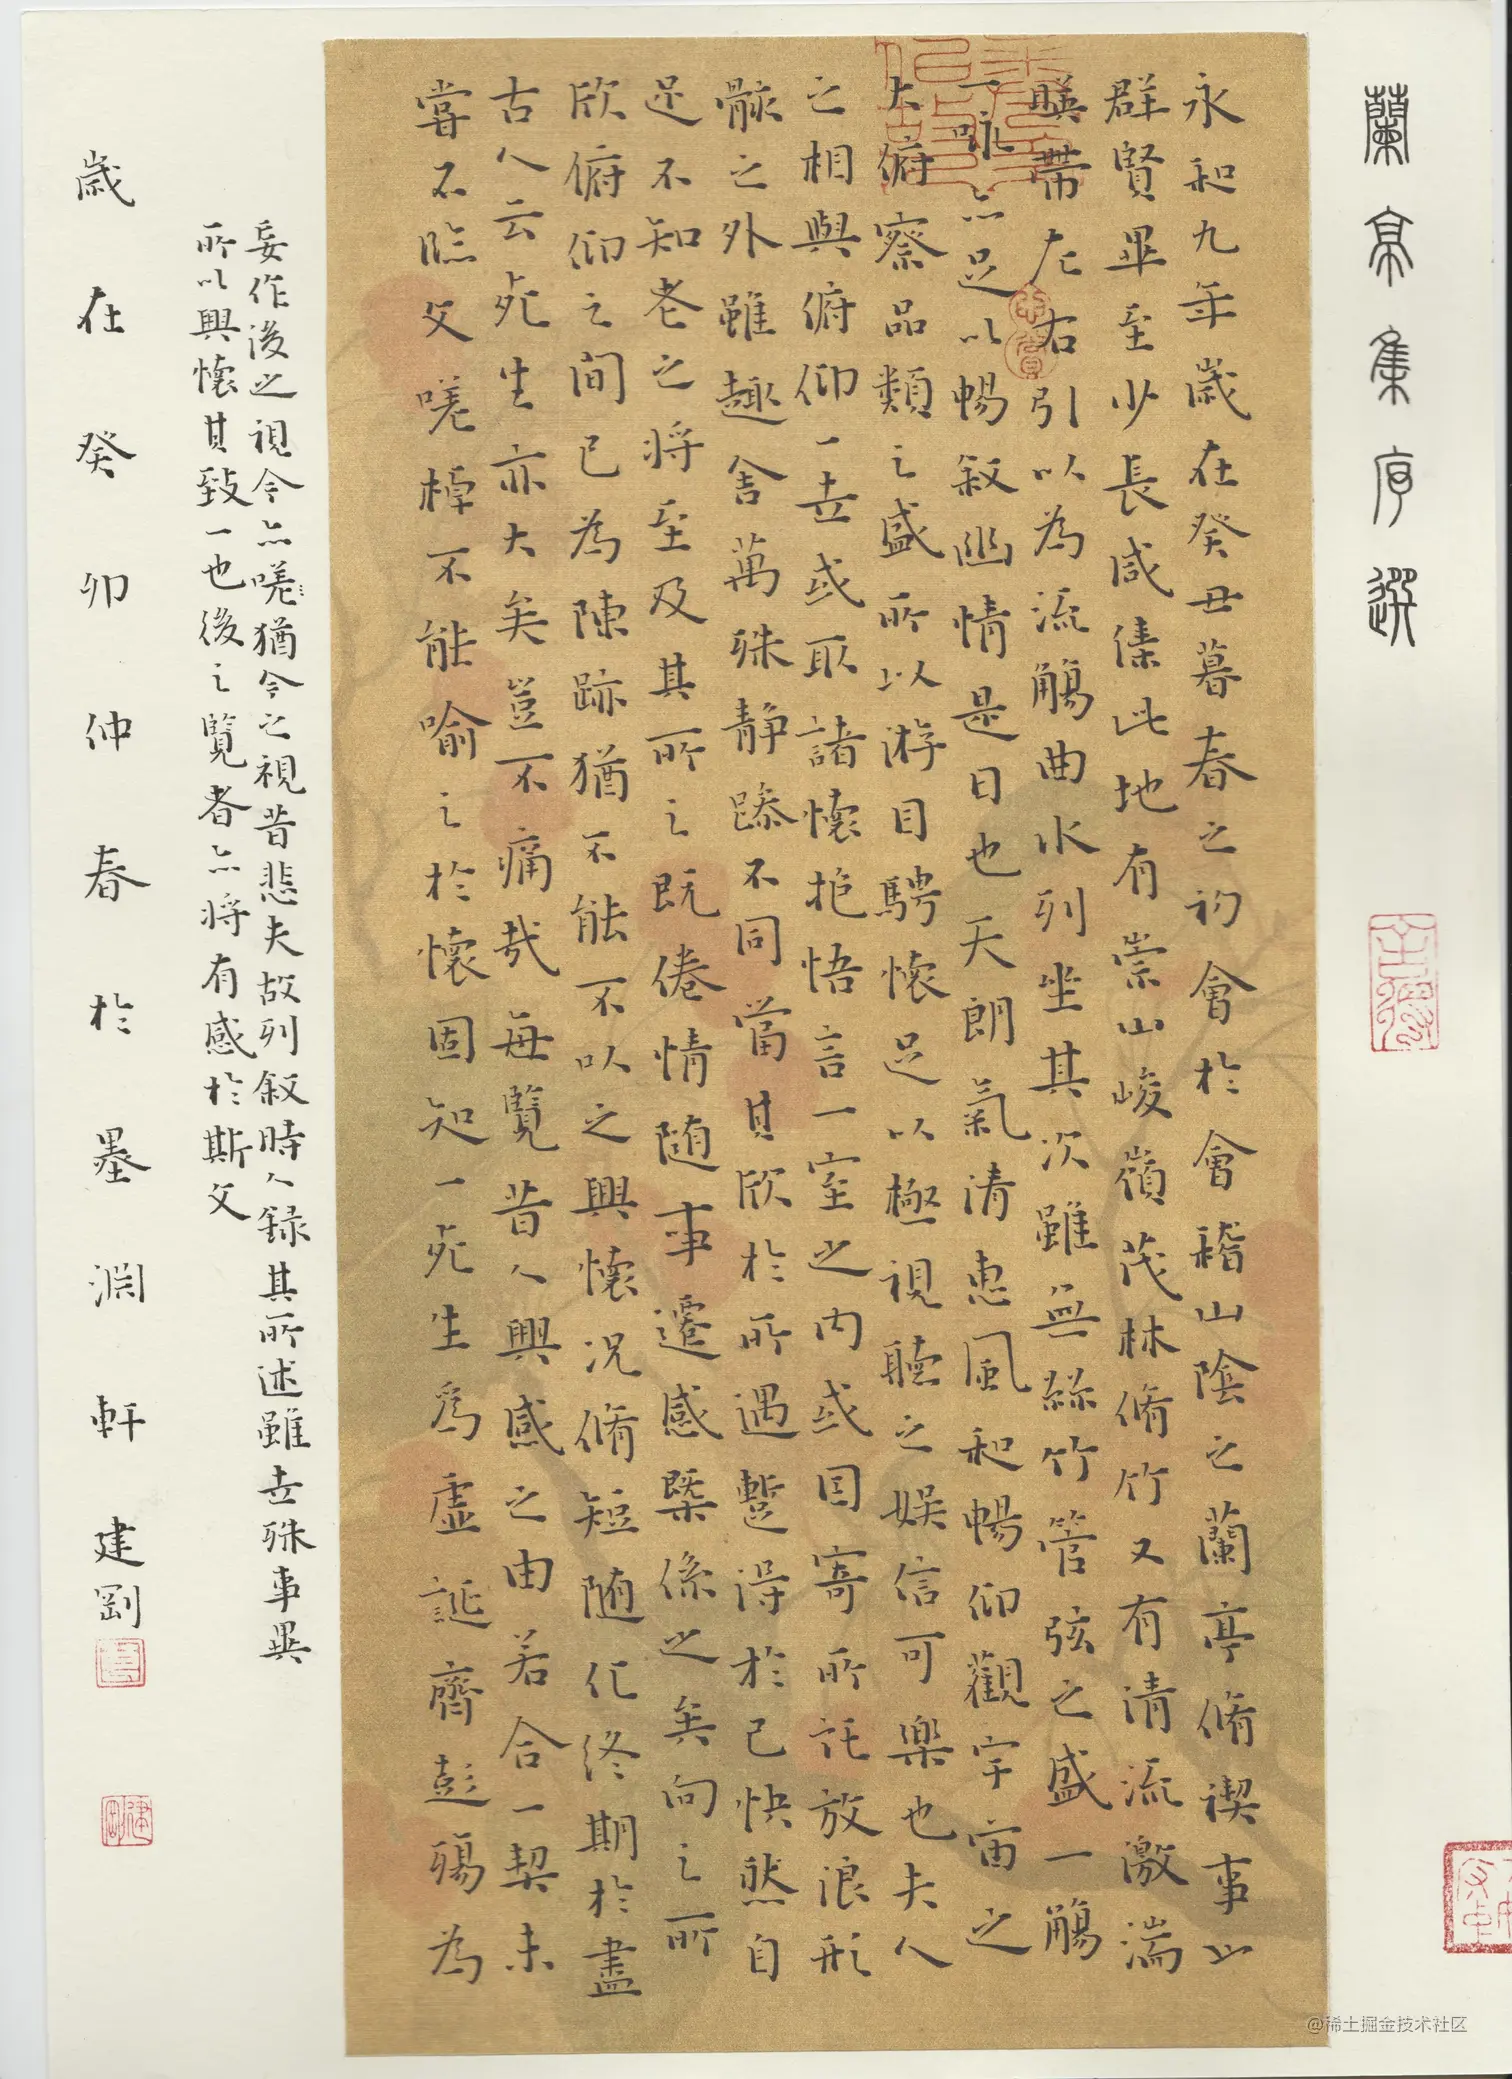 蘭亭集序選
永和九年歲在癸丑暮春之初會於會稽山陰之蘭亭脩禊事也
群賢畢至少長咸集此地有崇山峻嶺茂林脩竹又有清流激湍
暎帶左右引以為流觴曲水列坐其次雖無絲竹管弦之盛一觴
一詠亦足以暢敘幽情是日也天朗氣清惠風和暢仰觀宇宙之
大俯察品類之盛所以游目騁懷足以極視聽之娛信可樂也夫人
之相與俯仰一世或取諸懷抱悟言一室之內或因寄所託放浪形
骸之外雖趣舍萬殊靜躁不同當其欣於所遇蹔得於己快然自
足不知老之將至及其所之既倦情随事遷感槩係之矣向之所
欣俯仰之間已為陳跡猶不能不以之興懷況脩短随化終期於盡
古人云死生亦大矣豈不痛哉每覽昔人興感之由若合一契未
嘗不臨文嗟悼不能喻之於懷固知一死生為虛誕齊彭殤為
妄作後之視今亦嗟猶今之視昔悲夫故列敘時人録其所述雖世殊事異
所以興懷其致一也後之覽者亦將有感於斯文
歲在癸卯仲春於墨淵軒建剛
@稀土掘金技术社区